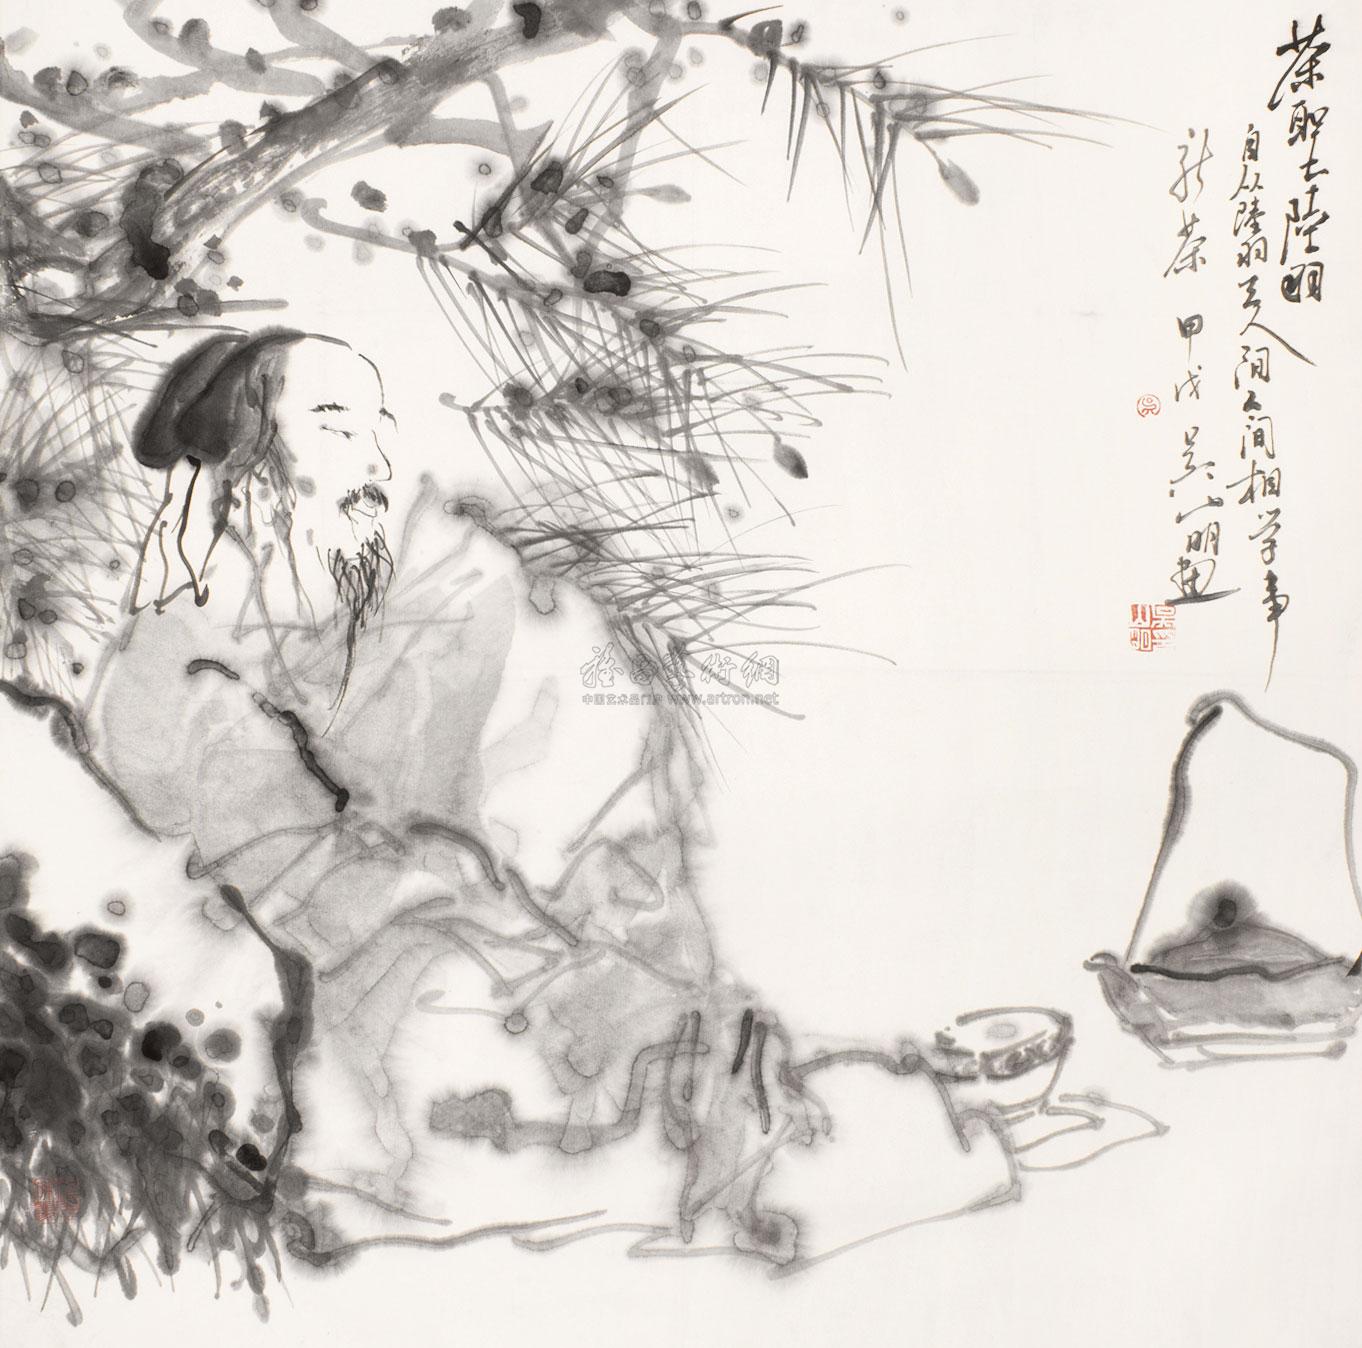 茶聖陸羽
自从陸羽生人间人间相学事
新茶 甲戌 吴山明画
吴
雅昌藝術網
中国艺术品门户 www.artron.net